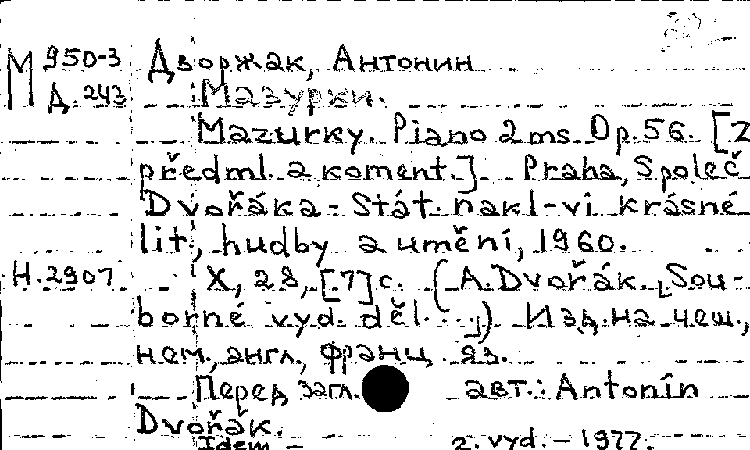 М 950-3 Дворжак, Антонин
Д. 243 Мазурки.
Mazurky. Piano 2 ms. Op. 56. [Z
předml. a koment.] Praha, Společ
Dvořáka - Stát. nakl-ví krásné
lit., hudby a umění, 1960.
Н.2907 X, 28, [7] с. (A. Dvořák. Sou-
borné vyd. děl...) Изд. на чеш.,
нем., англ., франц. яз.
Перед загл. авт.: Antonín
Dvořák.
Idem - 2. vyd. - 1977.